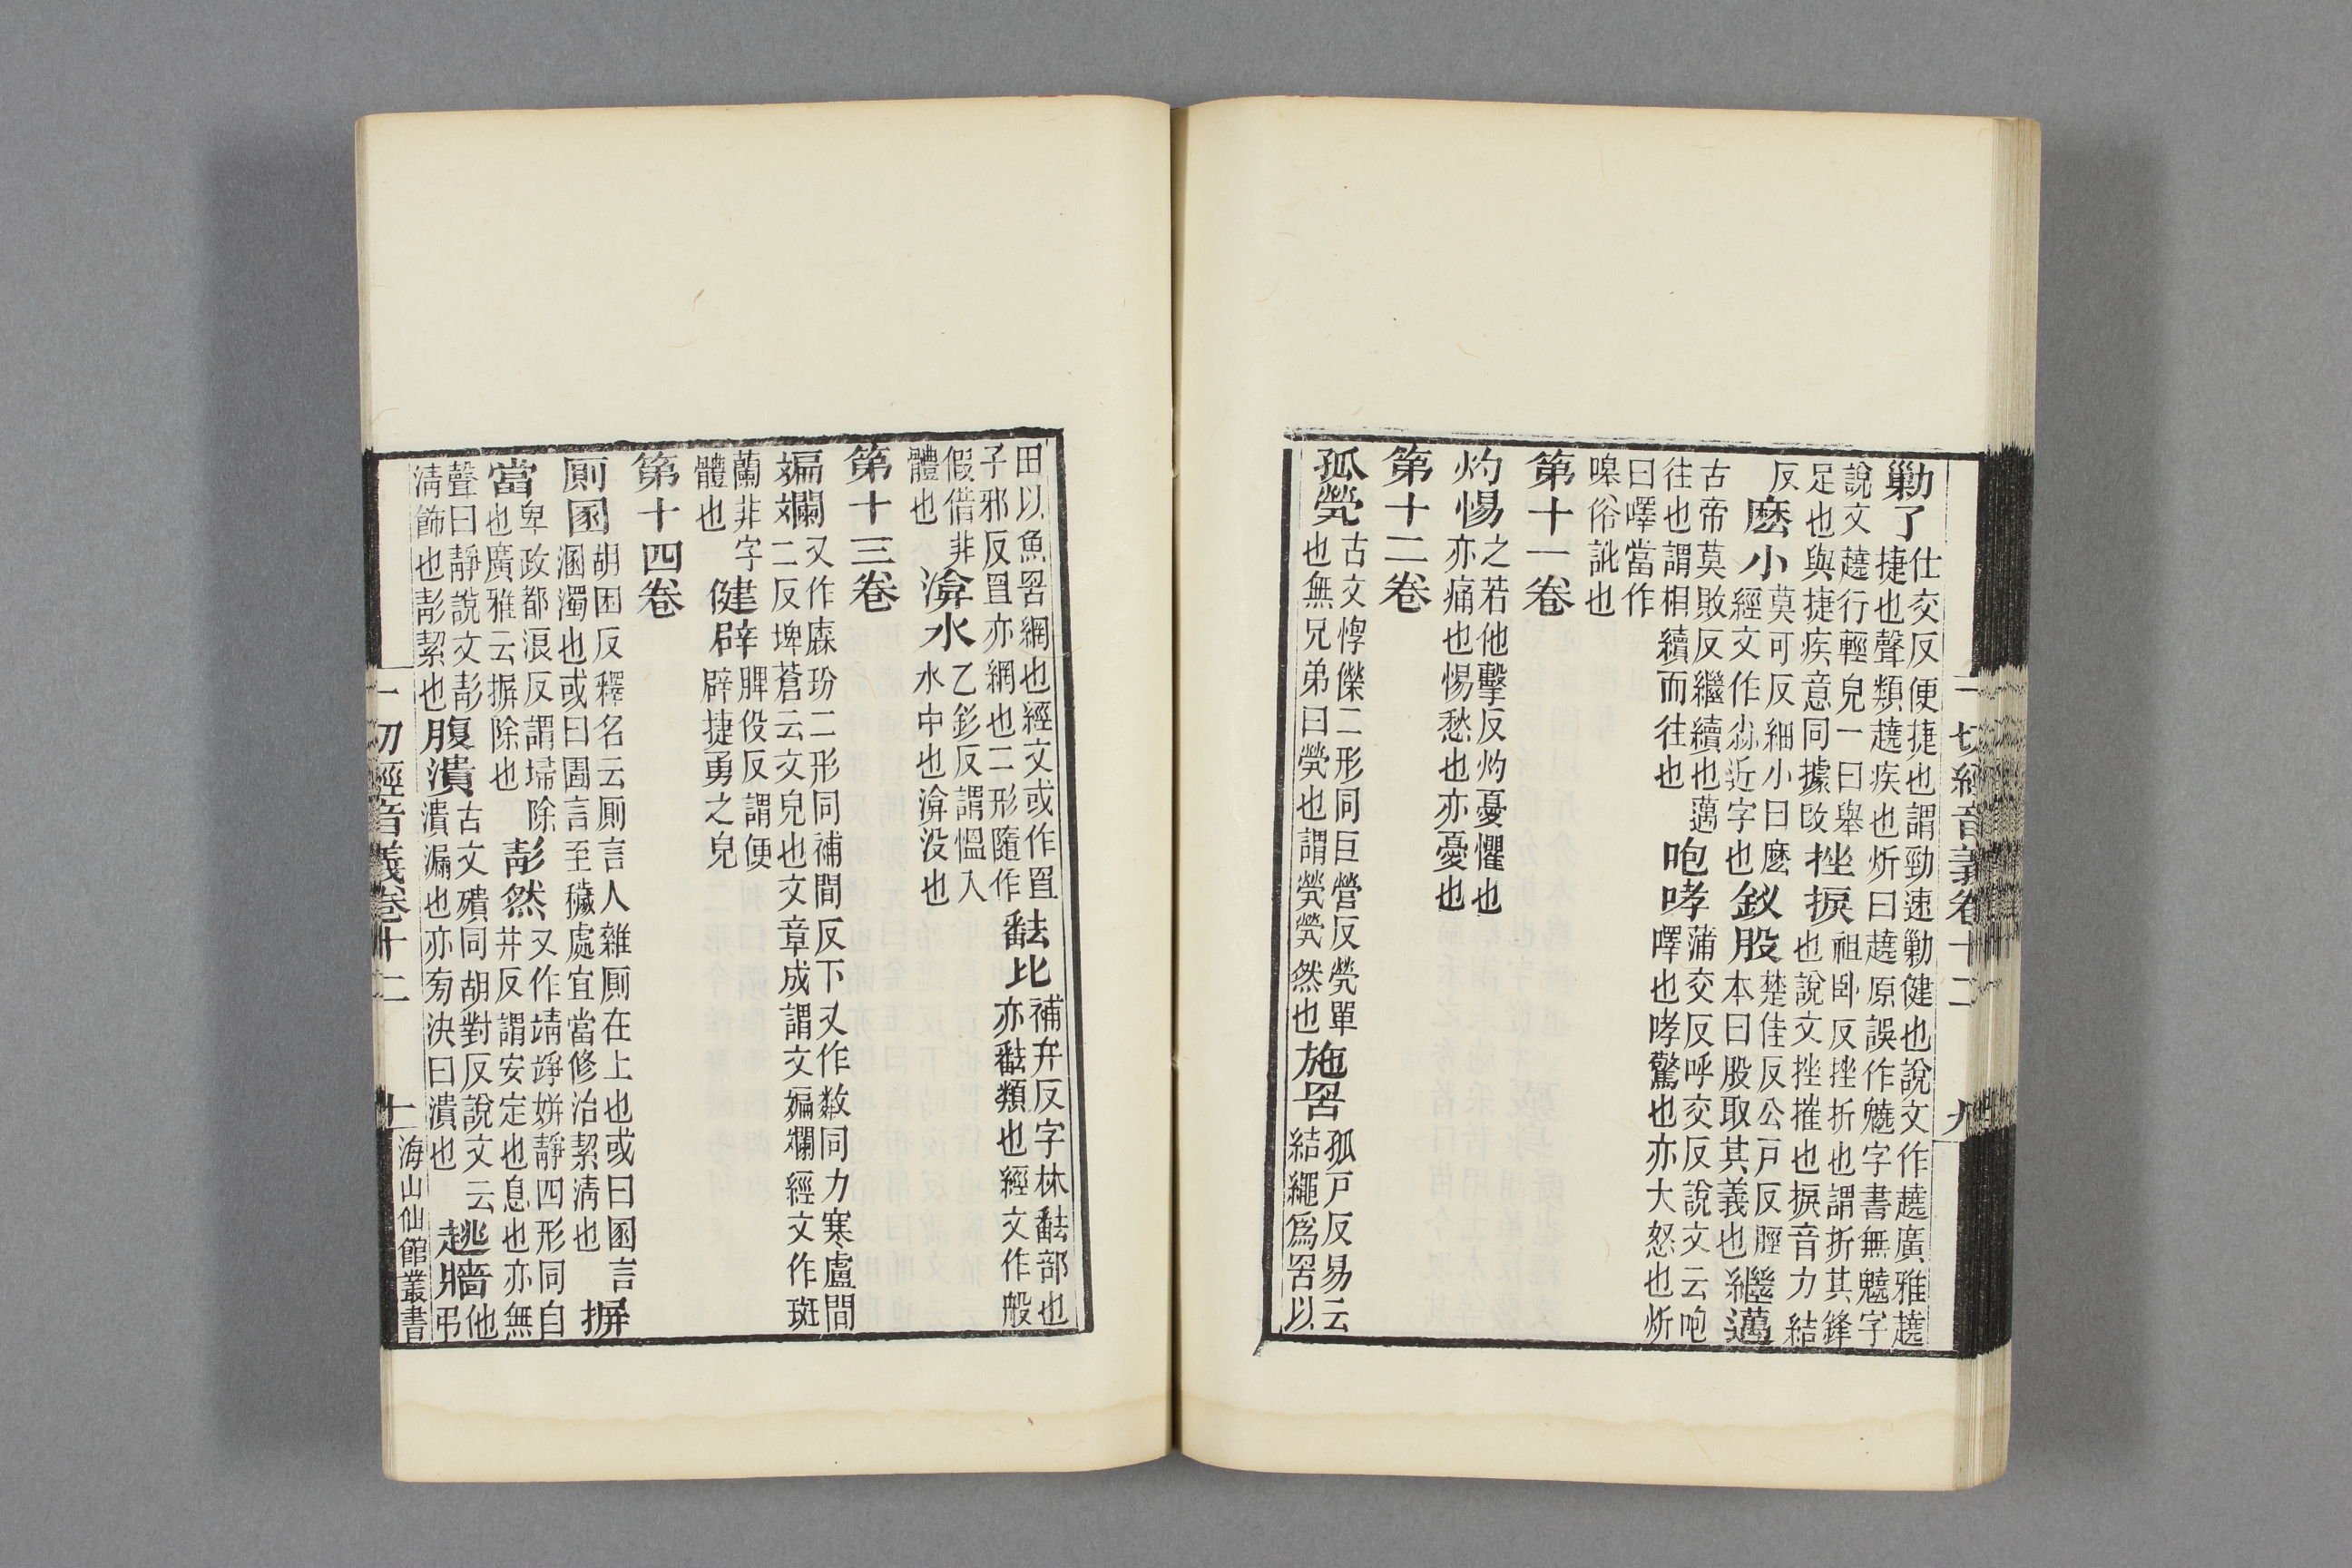 一切經音義卷十二　九
勦了
仕交反便捷也謂勁速勦健也說文作趬廣雅趬
捷也聲類趬疾也炘曰趬原誤作字書無字
說文趬行輕皃一曰舉
足也與捷疾意同據改
挫捩
祖臥反挫折也謂折其鋒
也說文挫摧也捩音力結
反
麽小
莫可反細小曰麽
經文作尛近字也
釵股
楚佳反公戶反脛
本曰股取其義也
繼邁
古帝莫敗反繼續也邁
往也謂相續而往也
咆哮
蒲交反呼交反說文云咆
嘷也哮驚也亦大怒也炘
曰嘷當作
嗥俗訛也
第十一卷
灼惕
之若他擊反灼憂懼也
亦痛也惕愁也亦憂也
第十二卷
孤煢
古文惸㒗二形同巨營反煢單
也無兄弟曰煢也謂煢煢然也
施罟
孤戶反易云
結繩爲罟以
田以魚罟網也經文或作罝
子邪反罝亦網也二形隨作
比
補弁反字林部也
亦類也經文作般
假借非
體也
渰水
乙反謂慍入
水中也渰没也
第十三卷
斒斕
又作㾀玢二形同補間反下又作同力寒盧間
二反埤蒼云文皃也文章成謂文斒斕經文作斑
蘭非字
體也
健辟
脾役反謂便
辟捷勇之皃
第十四卷
厠圂
胡困反釋名云厠言人雜厠在上也或曰圂言
溷濁也或曰圊言至穢處宜當修治潔清也
摒
當
卑政都浪反謂埽除
也廣雅云摒除也
彭然
又作靖竫妌靜四形同自
井反謂安定也息也亦無
聲曰靜說文彭
清飾也彭絜也
腹潰
古文殨同胡對反說文云
潰漏也亦旁決曰潰也
趒牆
他
弔
一切經音義卷十二　十
海山仙館叢書